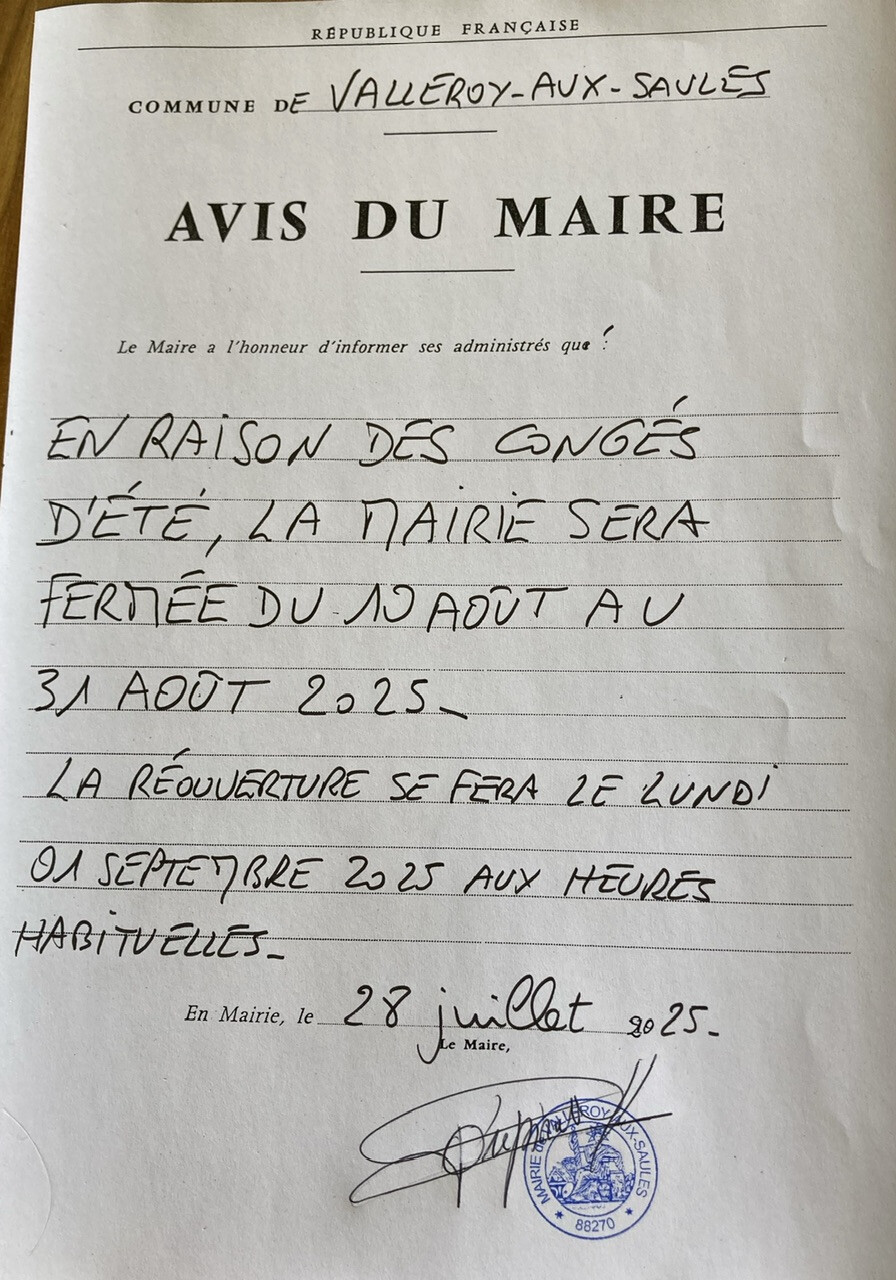 RÉPUBLIQUE FRANÇAISE
COMMUNE DE VALLEROY-AUX-SAULES
AVIS DU MAIRE
Le Maire a l'honneur d'informer ses administrés que :
EN RAISON DES CONGÉS
D'ÉTÉ, LA MAIRIE SERA
FERMÉE DU 10 AOÛT AU
31 AOÛT 2025_
LA RÉOUVERTURE SE FERA LE LUNDI
01 SEPTEMBRE 2025 AUX HEURES
HABITUELLES_
En Mairie, le 28 juillet 2025_
Le Maire,
MAIRIE VALLEROY-AUX-SAULES
* 88270 *